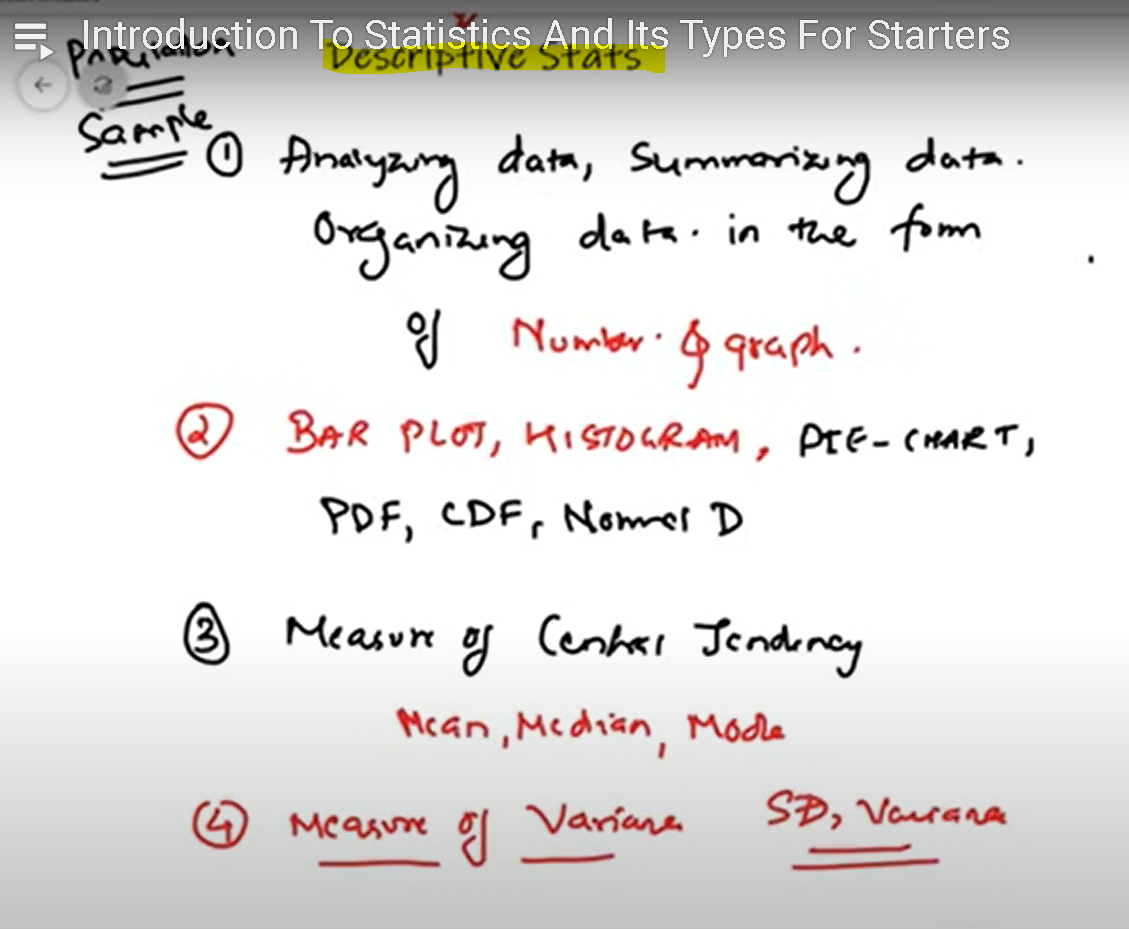 Introduction To Statistics And Its Types For Starters
Population
Descriptive Stats
Sample
① Analyzing data, Summarizing data.
Organizing data. in the form
of Number. & graph.
② BAR PLOT, HISTOGRAM, PIE-CHART,
PDF, CDF, Normal D
③ Measure of Central Tendency
Mean, Median, Mode
④ Measure of Variance SD, Variance